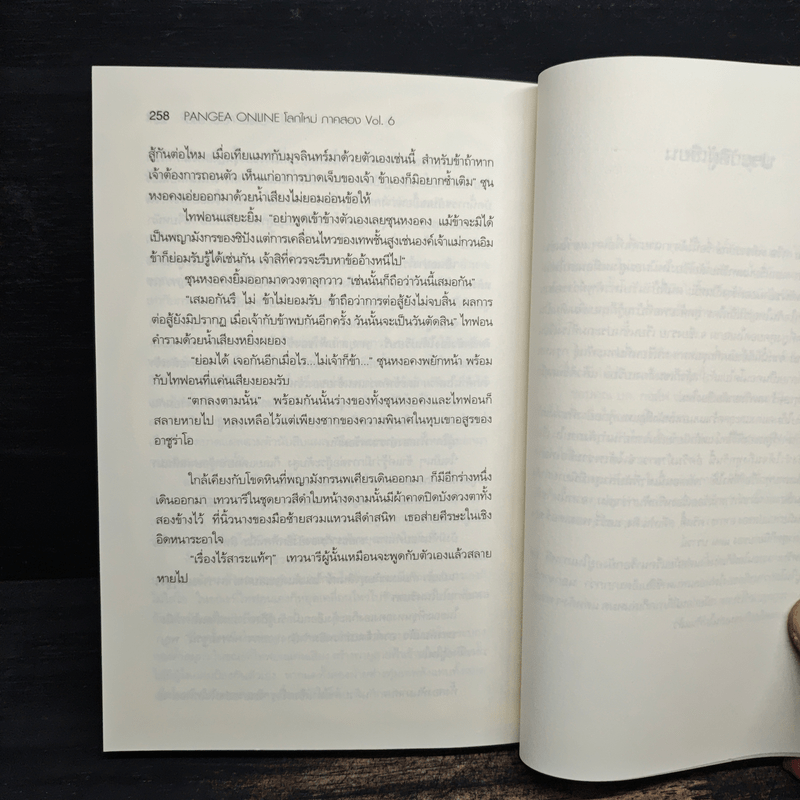 258 PANGEA ONLINE โลกใหม่ ภาคสอง Vol. 6
สู้กันต่อไหม เมื่อเทียแมทกับมุจลินทร์มาด้วยตัวเองเช่นนี้ สำหรับข้าถ้าหาก
เจ้าต้องการถอนตัว เห็นแก่อาการบาดเจ็บของเจ้า ข้าเองก็มิอยากซ้ำเติม" ซุน
หงอคงเอ่ยออกมาด้วยน้ำเสียงไม่ยอมอ่อนข้อให้
ไทฟอนแสยะยิ้ม "อย่าพูดเข้าข้างตัวเองเลยซุนหงอคง แม้ข้าจะมิได้
เป็นพญามังกรของซิปังแต่การเคลื่อนไหวของเทพชั้นสูงเช่นองค์เจ้าแม่กวนอิม
ข้าก็ย่อมรับรู้ได้เช่นกัน เจ้าสิที่ควรจะรีบหาข้ออ้างหนีไป"
ซุนหงอคงยิ้มออกมาดวงตาลุกวาว "เช่นนั้นก็ถือว่าวันนี้เสมอกัน"
"เสมอกันรึ ไม่ ข้าไม่ยอมรับ ข้าถือว่าการต่อสู้ยังไม่จบสิ้น ผลการ
ต่อสู้ยังมิปรากฏ เมื่อเจ้ากับข้าพบกันอีกครั้ง วันนั้นจะเป็นวันตัดสิน" ไทฟอน
คำรามด้วยน้ำเสียงหยิ่งผยอง
"ย่อมได้ เจอกันอีกเมื่อไร...ไม่เจ้าก็ข้า..." ซุนหงอคงพยักหน้า พร้อม
กับไทฟอนที่แค่นเสียงยอมรับ
"ตกลงตามนั้น" พร้อมกันนั้นร่างของทั้งซุนหงอคงและไทฟอนก็
สลายหายไป หลงเหลือไว้แต่เพียงซากของความพินาศในหุบเขาอสูรของ
อาซูร่าโอ
ใกล้เคียงกับโขดหินที่พญามังกรนพเศียรเดินออกมา ก็มีอีกร่างหนึ่ง
เดินออกมา เทวนารีในชุดยาวสีดำใบหน้างดงามนั้นมีผ้าคาดปิดบังดวงตาทั้ง
สองข้างไว้ ที่นิ้วนางของมือซ้ายสวมแหวนสีดำสนิท เธอส่ายศีรษะในเชิง
อิดหนาระอาใจ
"เรื่องไร้สาระแท้ๆ" เทวนารีผู้นั้นเหมือนจะพูดกับตัวเองแล้วสลาย
หายไป